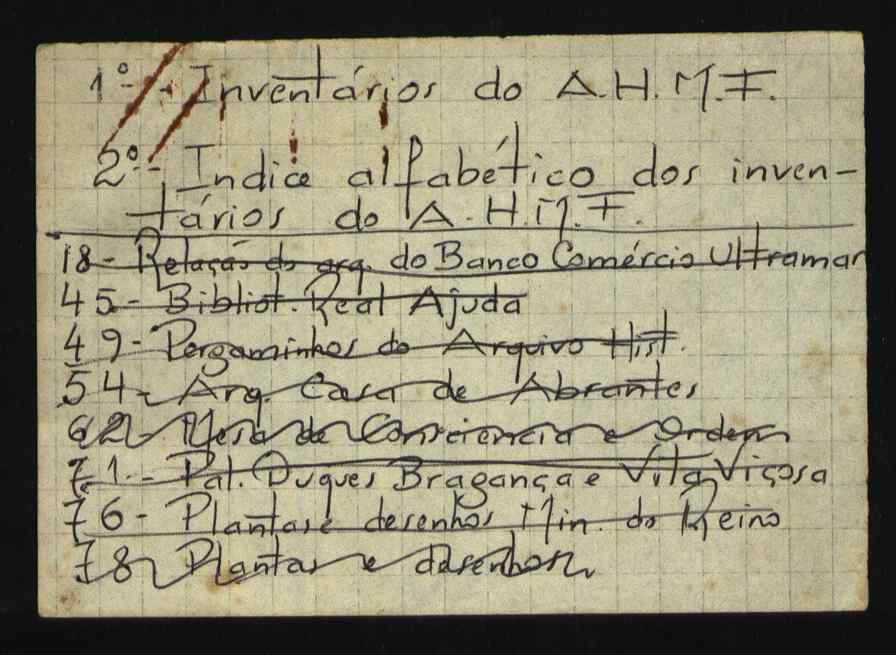 1º - Inventários do A.H.M.F.
2º - Indice alfabético dos inven-
tários do A.H.M.F.
18 - Relação do arq. do Banco Comércio Ultramar
45 - Bibliot. Real Ajuda
49 - Pergaminhos do Arquivo Hist.
54 - Arq. Casa de Abrantes
62 - Mesa de Consciencia e Ordem
71 - Pal. Duques Bragança e Vila Viçosa
76 - Plantas e desenhos Min. do Reino
78 - Plantas e desenhos